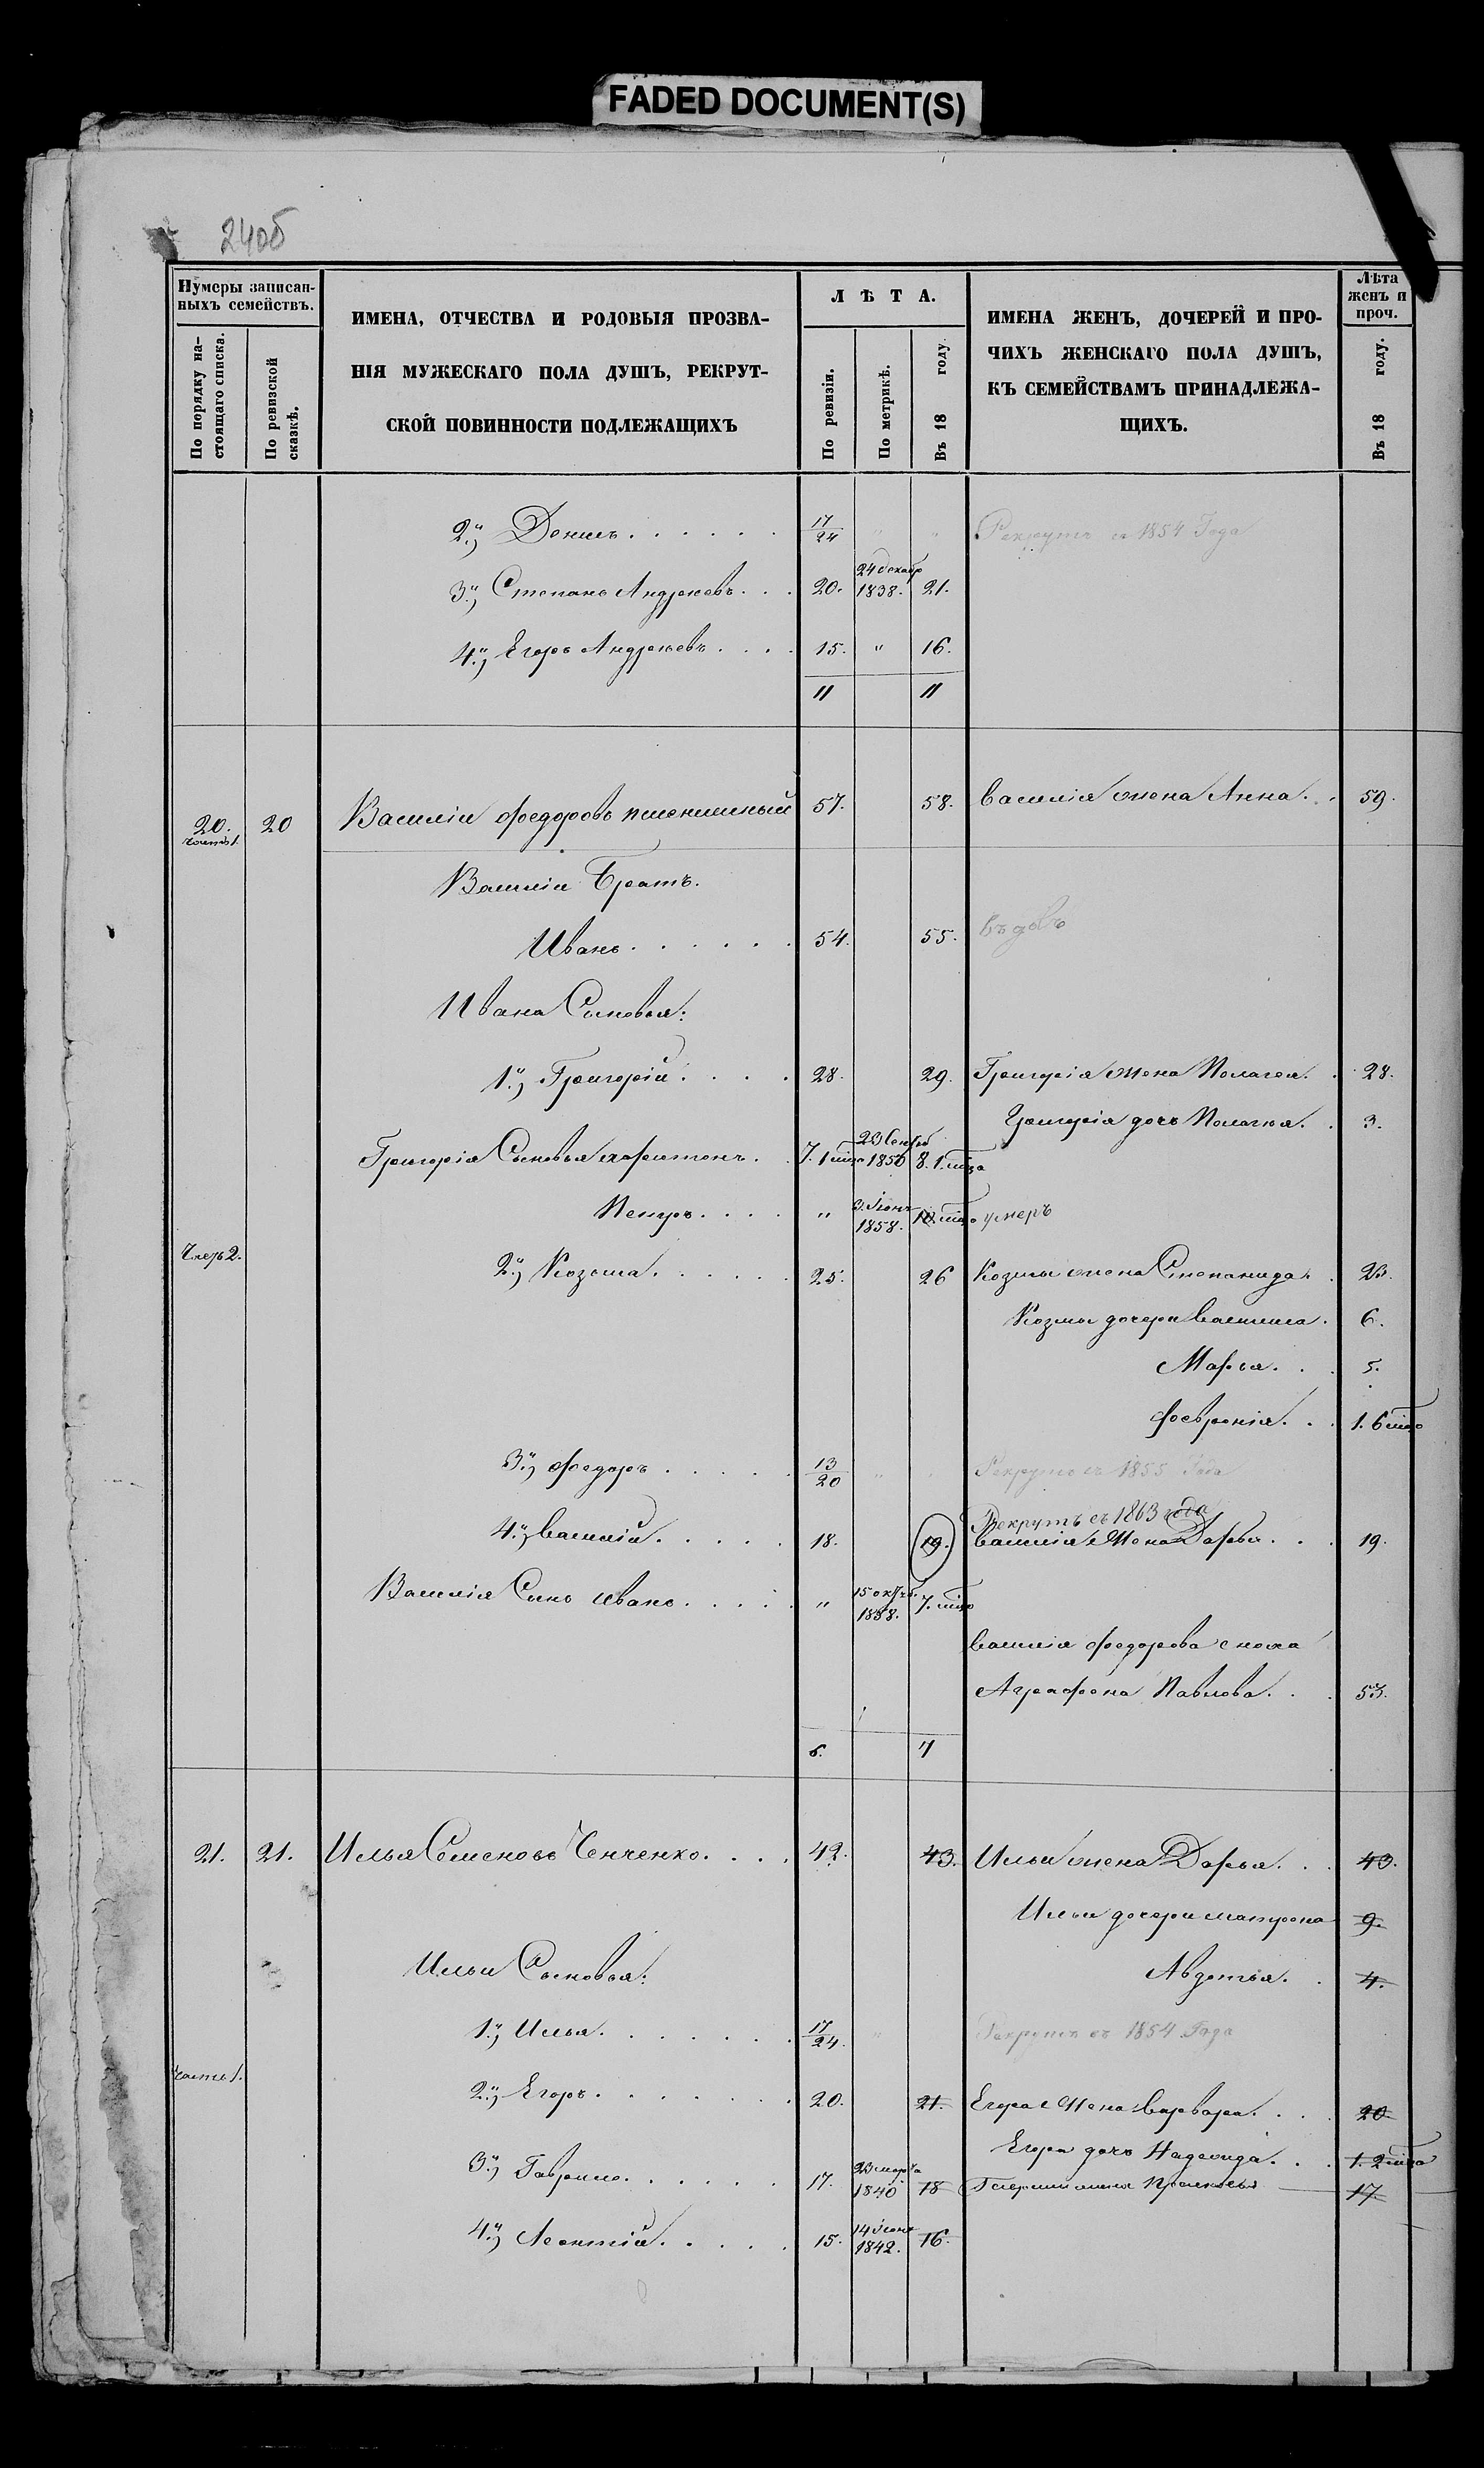 FADED DOCUMENT(S)
240б
Нумеры записан-
ныхъ семействъ.
По порядку на-
стоящаго списка.
По ревизской
сказкѣ.
ИМЕНА, ОТЧЕСТВА И РОДОВЫЯ ПРОЗВА-
НІЯ МУЖЕСКАГО ПОЛА ДУШЪ, РЕКРУТ-
СКОЙ ПОВИННОСТИ ПОДЛЕЖАЩИХЪ
ЛѢТА.
По ревизіи.
По метрикѣ.
Въ 18 году.
ИМЕНА ЖЕНЪ, ДОЧЕРЕЙ И ПРО-
ЧИХЪ ЖЕНСКАГО ПОЛА ДУШЪ,
КЪ СЕМЕЙСТВАМЪ ПРИНАДЛЕЖА-
ЩИХЪ.
Лѣта
женъ и
проч.
Въ 18 году.
2й, . . . . . . 17/24 " " Рекрутъ съ 1854 Года
3й, Степанъ Андреевъ . . . 20. 24 декабр 1838. 21.
4й, Егоръ Андреевъ . . . . 15. " 16.
11 11
20. часть 1. 20 Василій Федоровъ Пшеничный 57. 58. Василія жена Анна . . 59.
Василія Братъ.
Иванъ . . . . . . 54. 55. вдовъ
Ивана Сыновья:
1й, Григорій . . . . 28. 29. Григорія жена Пелагея . . 28.
Григорія дочь Пелагея . . 3.
Григорія Сыновья Харитонъ . . 7. 1 мца 1850 8. 1. мца
Петръ . . . . " 3. Іюня 1858. 10. мцо умеръ
Часть 2. 2й, Козьма . . . . . . 25. 26 Козмы жена Степанида . . 23.
Козмы дочери Василиса . 6.
Марья . . . 5.
Февронія . . . 1. 6 мцо
3й, Федоръ . . . . . 13/20 " " Рекрутъ съ 1855 Года
Рекрутъ съ 1863 года
4й, Василій . . . . . 18. 19. Василія жена Дарья . . . 19.
Василія Сынъ Иванъ . . . . . " 15 октяб. 1858. 7. мцо
Василія Федорова сноха
Аграфена Павлова . . . 53.
6. 7
21. 21. Илья Семеновъ Ченченко . . . . 42. 43. Ильи жена Дарья . . . 43.
Ильи дочери Матрона 9.
Ильи Сыновья: Авдотья . . 4.
1й, Илья . . . . . . . 17/24. " Рекрутъ съ 1854 Года
часть 1. 2й, Егоръ . . . . . . . 20. 21. Егора жена Варвара . . . . 20.
Егора дочь . . . 1. 2 мца
3й, Гаврило . . . . . . 17. 23 марта 1840 18 Гаврилы жена Прасковья 17.
4й, Леонтій . . . . . 15. 14 Іюня 1842. 16.